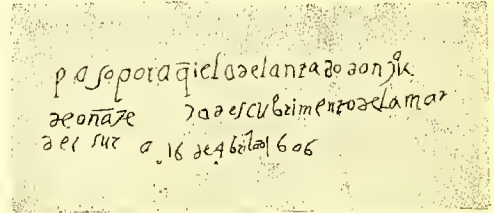 paso por aq̄i el adelantado don jũ
de oñate descubrimento de la mar
del sur a 16 de Abril 1606